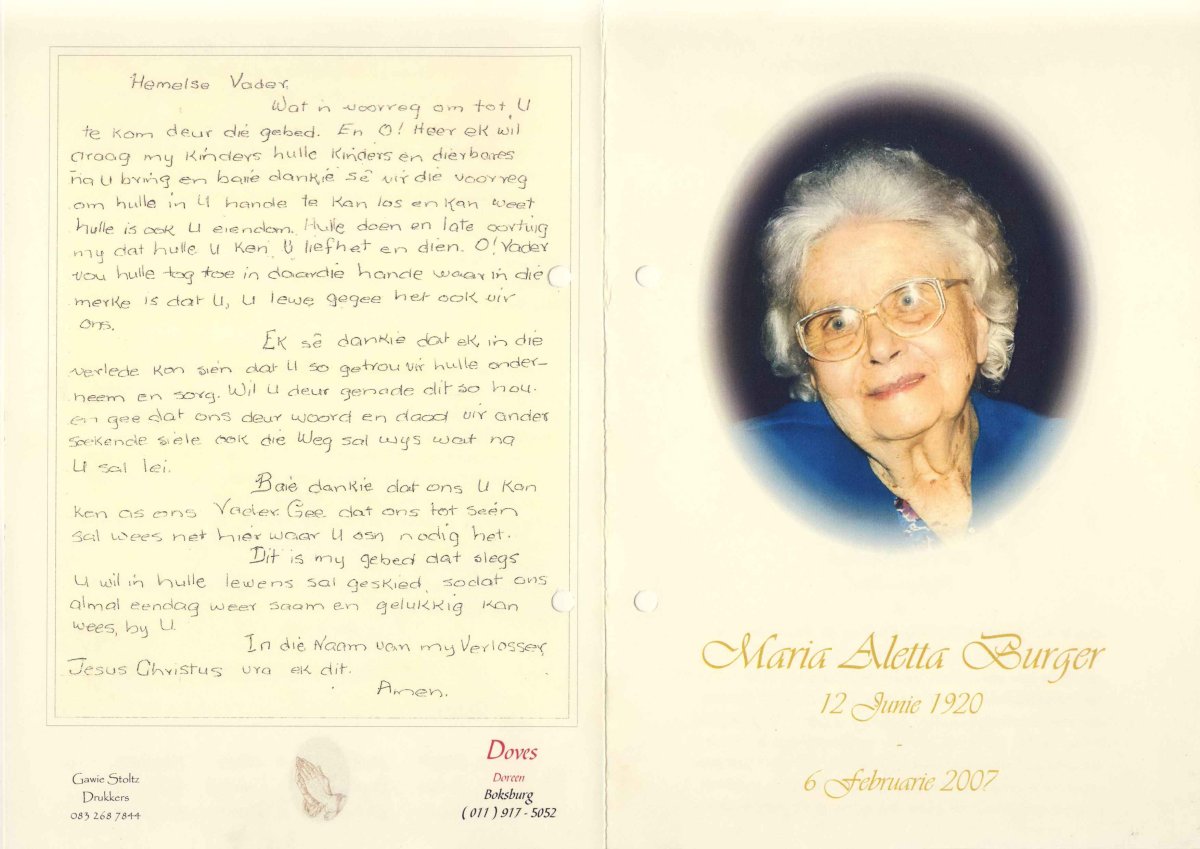 Hemelse Vader,
Wat 'n voorreg om tot U
te kom deur die gebed. En O! Heer ek wil
graag my kinders hulle kinders en dierbares
na U bring en baie dankie sê vir die voorreg
om hulle in U hande te kan los en kan weet
hulle is ook U eiendom. Hulle doen en late oortuig
my dat hulle U ken, U liefhet en dien. O! Vader
vou hulle tog toe in daardie hande waar in die
merke is dat U, U lewe gegee het ook vir
ons.
Ek sê dankie dat ek in die
verlede kon sien dat U so getrou vir hulle onder-
neem en sorg. Wil U deur genade dit so hou.
en gee dat ons deur woord en daad vir ander
soekende siele ook die Weg sal wys wat na
U sal lei.
Baie dankie dat ons U kan
ken as ons Vader. Gee dat ons tot seën
sal wees net hier waar U osn nodig het.
Dit is my gebed dat slegs
U wil in hulle lewens sal geskied, sodat ons
almal eendag weer saam en gelukkig kan
wees, by U.
In die Naam van my Verlosser,
Jesus Christus vra ek dit.
Amen.
Gawie Stoltz
Drukkers
083 268 7844
Doves
Doreen
Boksburg
( 011 ) 917 - 5052
Maria Aletta Burger
12 Junie 1920
-
6 Februarie 2007